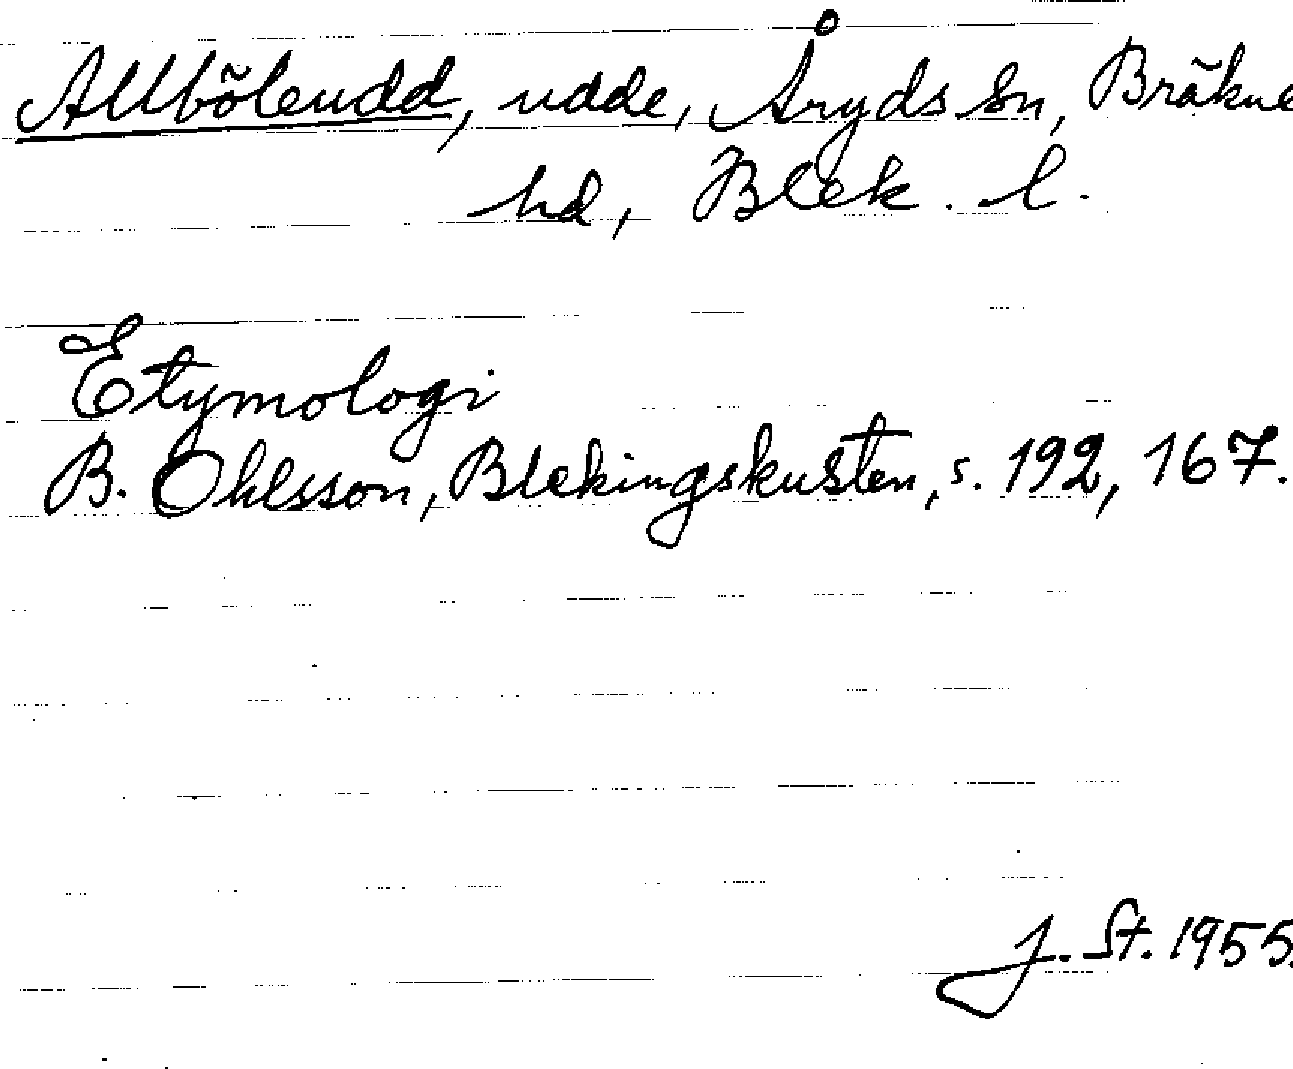 Allböleudd, udde, Åryds sn, Bräkne
hd, Blek. l.
Etymologi
B. Ohlsson, Blekingskusten, s. 192, 167.
J. St. 1955.